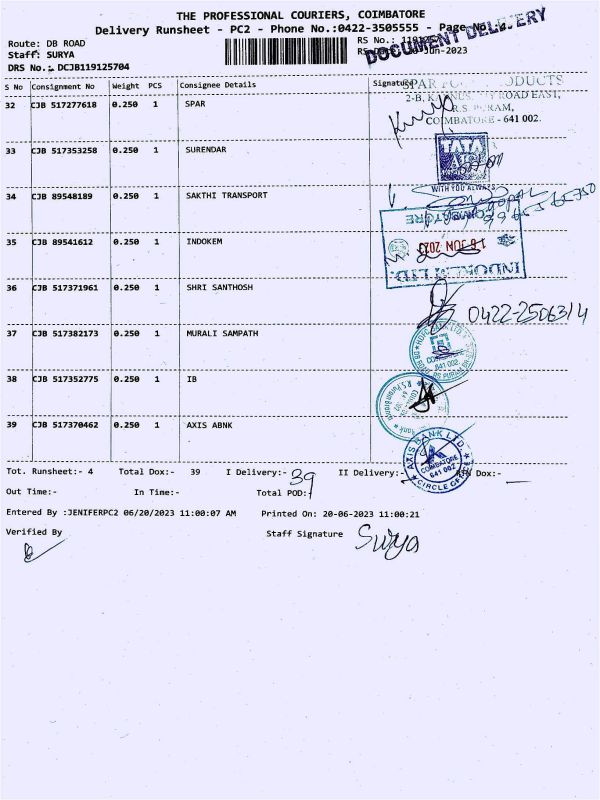 THE PROFESSIONAL COURIERS, COIMBATORE
Delivery Runsheet - PC2 - Phone No.:0422-3505555 - Page No.:
DOCUMENT DELIVERY
Route: DB ROAD
RS No.:
Staff: SURYA
Jun-2023
DRS No.: DCJB119125704
S No Consignment No Weight PCS Consignee Details Signature
32 CJB 517277618 0.250 1 SPAR
ROAD EAST,
R.S. PURAM,
COIMBATORE - 641 002.
33 CJB 517353258 0.250 1 SURENDAR
TATA
AIG
WITH YOU ALWAYS
34 CJB 89548189 0.250 1 SAKTHI TRANSPORT
35 CJB 89541612 0.250 1 INDOKEM
COIMBATORE
16 JUN 2023
INDOKEM LTD.
36 CJB 517371961 0.250 1 SHRI SANTHOSH
0422-2506314
37 CJB 517382173 0.250 1 MURALI SAMPATH
641 002
38 CJB 517352775 0.250 1 IB
39 CJB 517370462 0.250 1 AXIS ABNK
AXIS BANK LTD.
COIMBATORE
641 002
CIRCLE OFFICE
Tot. Runsheet:- 4 Total Dox:- 39 I Delivery:- 39 II Delivery:- Dox:-
Out Time:- In Time:- Total POD:
Entered By :JENIFERPC2 06/20/2023 11:00:07 AM Printed On: 20-06-2023 11:00:21
Verified By Staff Signature Surya